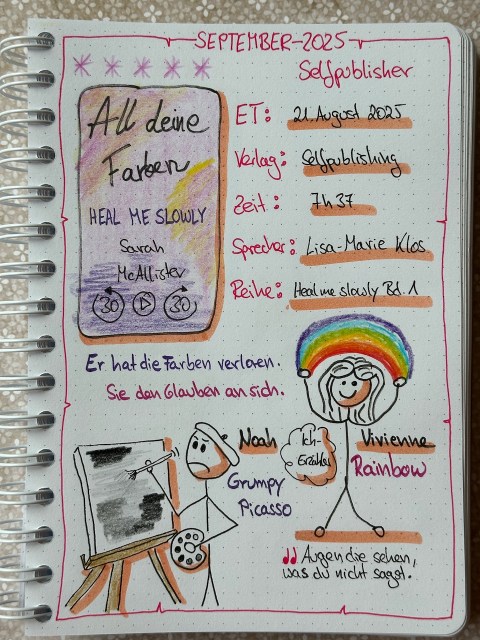 SEPTEMBER-2025
Selfpublisher
All deine
Farben
HEAL ME SLOWLY
Sarah
McAllister
30 30
ET: 21. August 2025
Verlag: Selfpublishing
Zeit: 7h 37
Sprecher: Lisa-Marie Klos
Reihe: Heal me slowly Bd. 1
Er hat die Farben verloren.
Sie den Glauben an sich.
Noah
Grumpy
Picasso
Ich-
Erzähler
Vivienne
Rainbow
Augen die sehen,
was du nicht sagst.